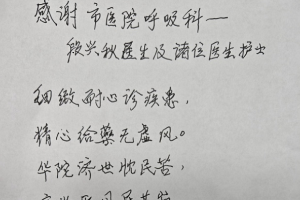 感谢市医院呼吸科—
段兴秋医生及诸位医生护士
细致耐心诊疾患,
精心给药无虚风。
华院济世忱民